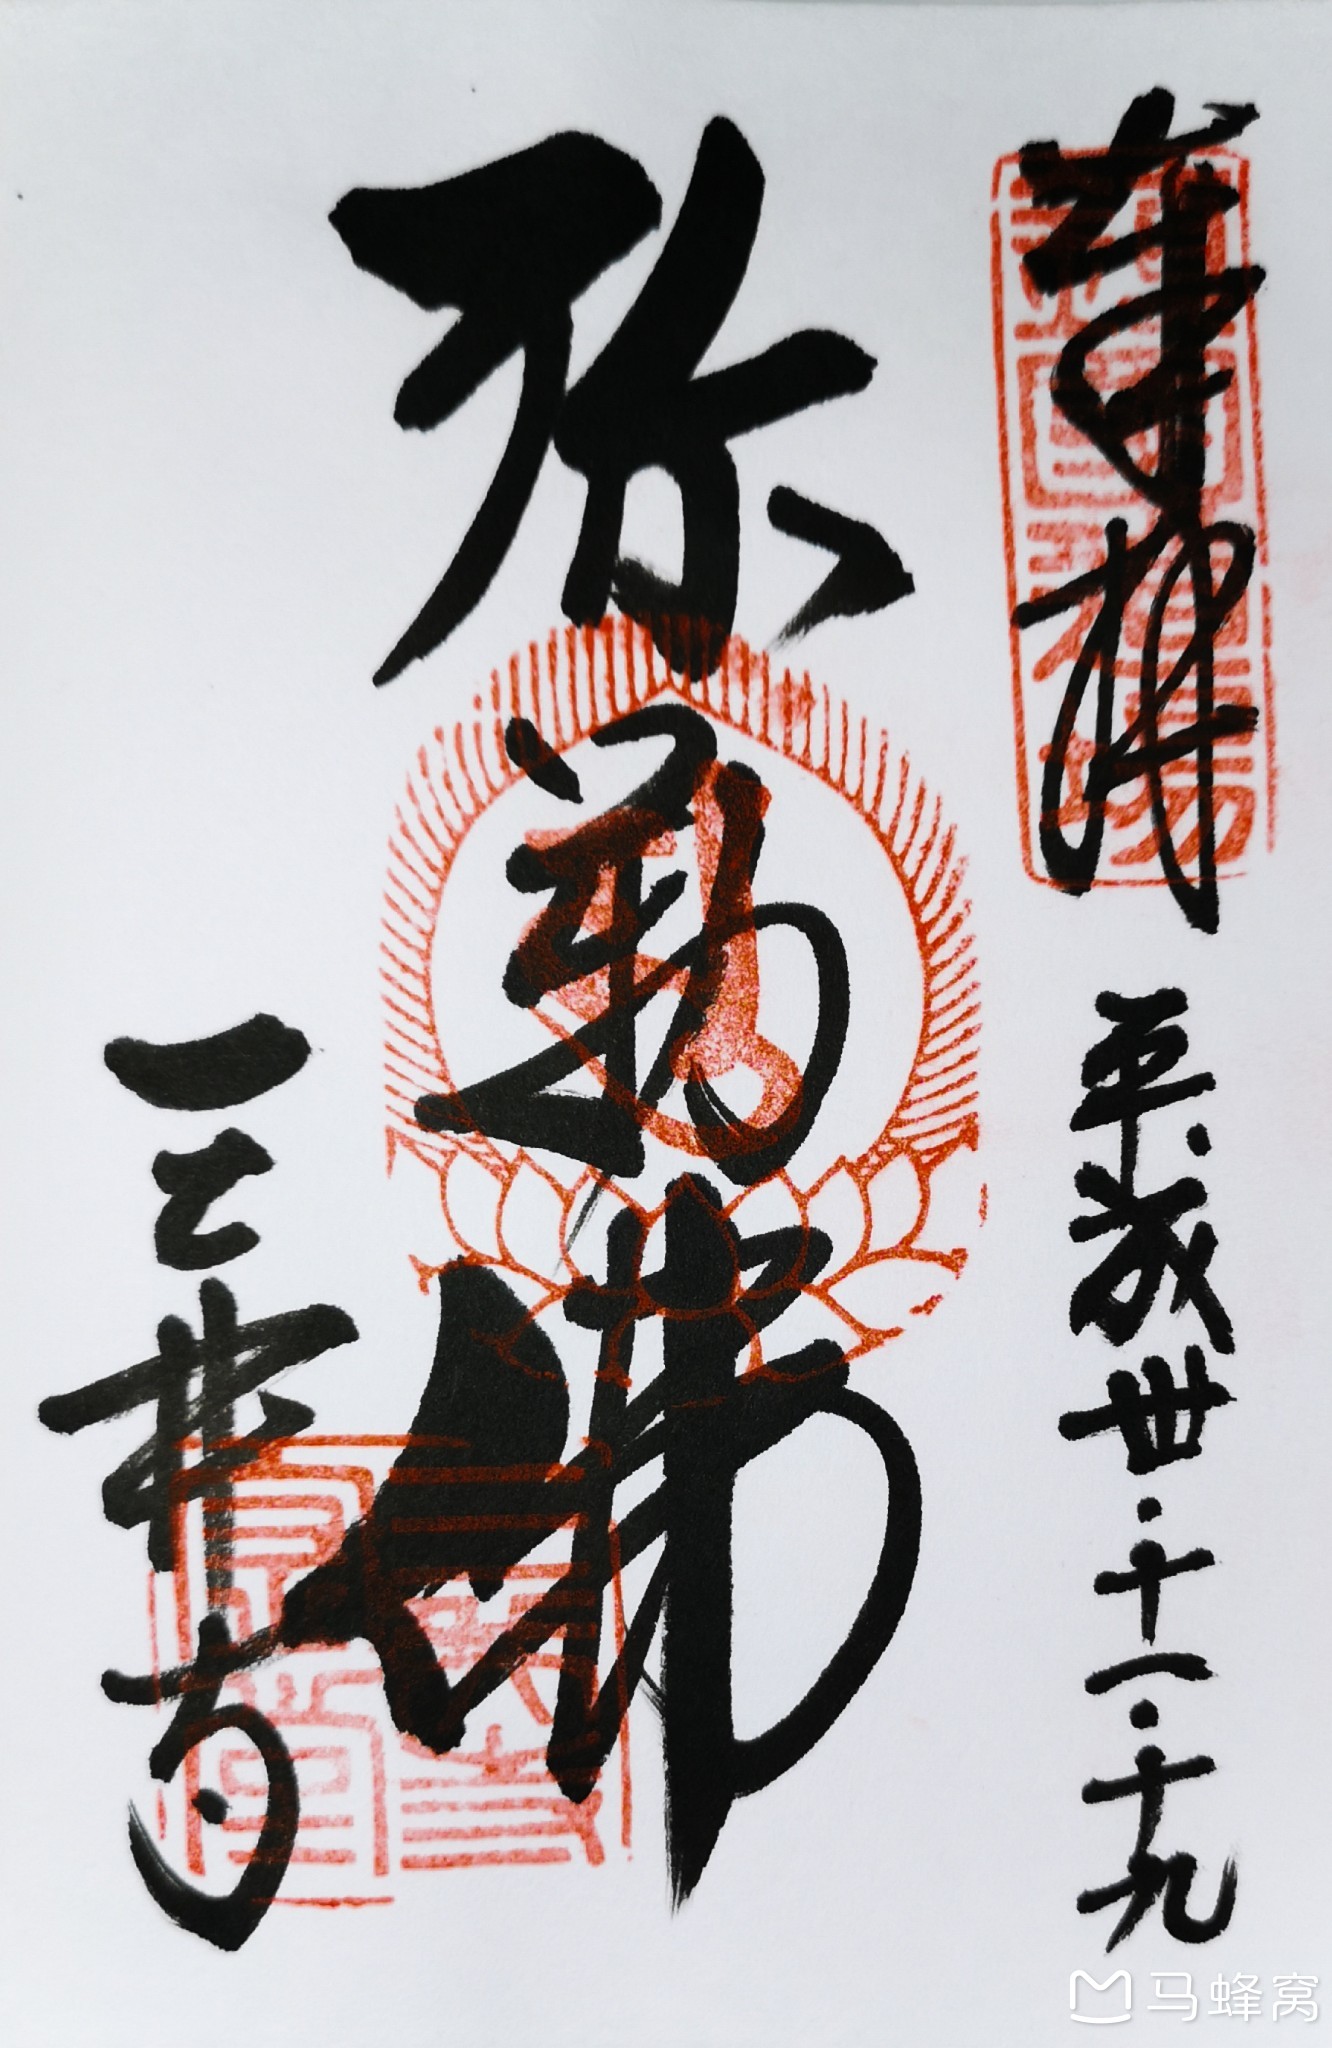 奉拝
平成卅・十一・十九
弥勒佛
三井寺
马蜂窝